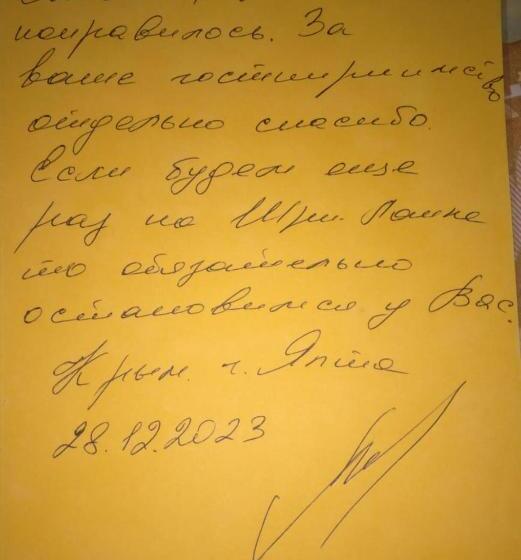 понравилось. За
ваше гостиприимство
отдельно спасибо.
Если будем еще
раз на Шри. Ланке
то обязательно
остановимся у Вас.
Крым. г. Ялта
28.12.2023